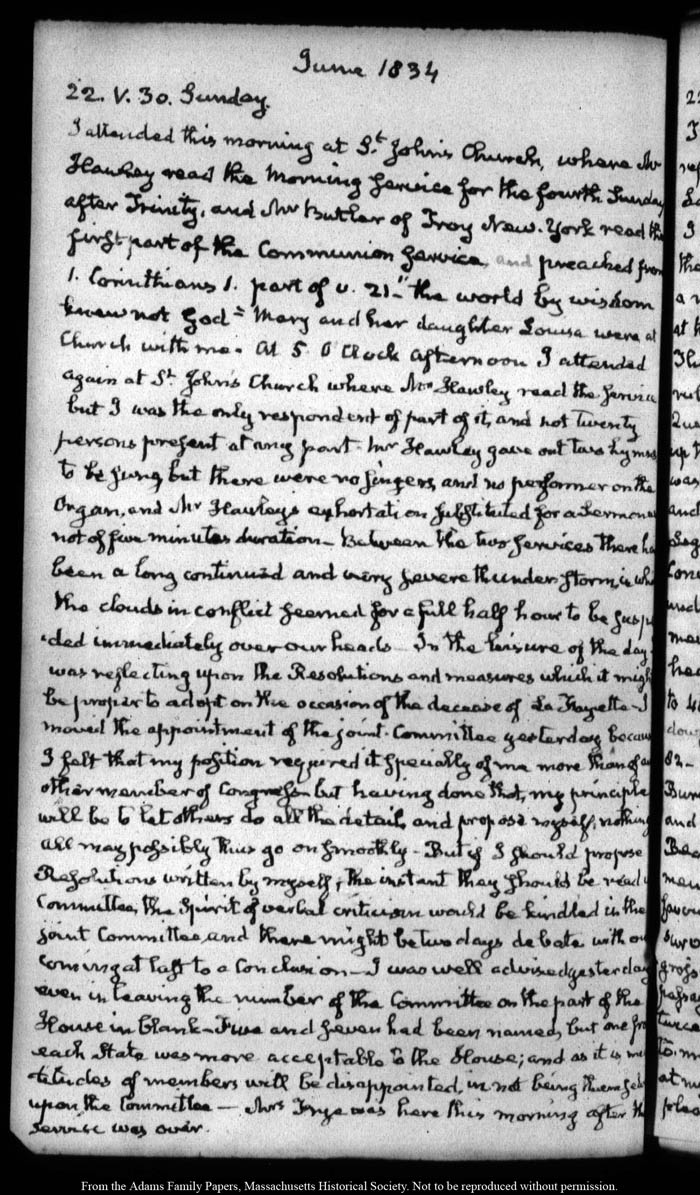 June 1834
22. V. 30. Sunday.
I attended this morning at St. John's Church, where Mr
Hawley read the Morning Service for the fourth Sunday
after Trinity, and Mr Butler of Troy New-York read the
first part of the Communion Service, and preached from
1. Corinthians 1. part of v. 21. "the world by wisdom
knew not God" Mary and her daughter Louisa were at
Church with me. At 5. O'Clock afternoon I attended
again at St. John's Church where Mr Hawley read the Service
but I was the only respondent of part of it, and not twenty
persons present at any part. Mr Hawley gave out two hymns
to be sung, but there were no singers, and no performer on the
Organ, and Mr Hawley's exhortation substituted for a Sermon was
not of five minutes duration - Between the two services there ha
been a long continued and very severe thunder storm, in wh
the clouds in conflict seemed for a full half hour to be susp
ded immediately over our heads - In the leisure of the day
was reflecting upon the Resolutions and measures which it migh
be proper to adopt on the occasion of the decease of La Fayette - I
moved the appointment of the joint Committee yesterday becau
I felt that my position required it specially of me more than of an
other member of Congress - but having done that, my principle
will be to let others do all the detail, and propose myself, nothing
all may possibly thus go on smoothly - But if I should propose
Resolutions written by myself, the instant they should be read
Committee, the Spirit of verbal criticism would be kindled in the
joint Committee, and there might be two days debate with ou
coming at last to a Conclusion - I was well advised yesterday
even in leaving the number of the Committee on the part of the
House in blank - Five and seven had been named, but one fro
each State was more acceptable to the House; and as it is mu
titudes of members will be disappointed, in not being themsel
upon the Committee - Mrs Frye was here this morning after th
service was over.
From the Adams Family Papers, Massachusetts Historical Society. Not to be reproduced without permission.